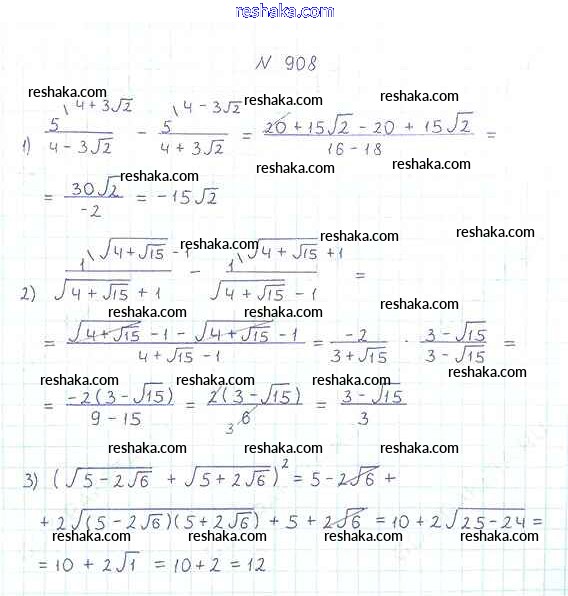 reshaka.com
N 908
reshaka.com reshaka.com
1) 5\4+3√2 / (4-3√2) - 5\4-3√2 / (4+3√2) = (20+15√2-20+15√2) / (16-18) =
reshaka.com reshaka.com
reshaka.com reshaka.com
= 30√2 / -2 = -15√2
reshaka.com reshaka.com reshaka.com
2) 1\√(4+√15)-1 / (√(4+√15)+1) - 1\√(4+√15)+1 / (√(4+√15)-1) =
reshaka.com reshaka.com
reshaka.com reshaka.com
= (√(4+√15)-1-√(4+√15)-1) / (4+√15-1) = -2 / (3+√15) · (3-√15) / (3-√15) =
reshaka.com reshaka.com reshaka.com
= -2(3-√15) / (9-15) = 2(3-√15) / 6 3 = (3-√15) / 3
reshaka.com reshaka.com reshaka.com
3) (√(5-2√6) + √(5+2√6))² = 5-2√6 +
reshaka.com reshaka.com
+ 2√((5-2√6)(5+2√6)) + 5 + 2√6 = 10+2√(25-24) =
reshaka.com reshaka.com reshaka.com
= 10 + 2√1 = 10+2 = 12